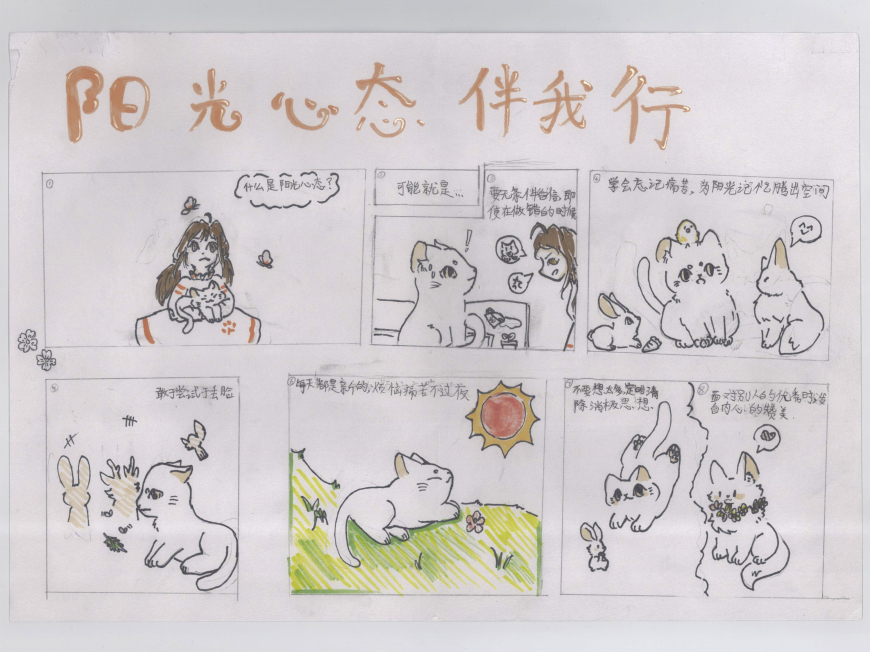 阳光心态 伴我行
①
什么是阳光心态?
②
可能就是...
③
要无条件自信,即
使在做错的时候
④
学会忘记痛苦,为阳光记忆腾出空间
⑤
敢于尝试于丢脸
⑥
每天都是新的,烦恼痛苦不过夜
⑦
不要想太多,定时清
除消极思想.
⑧
面对别人的优秀时,发
自内心的赞美